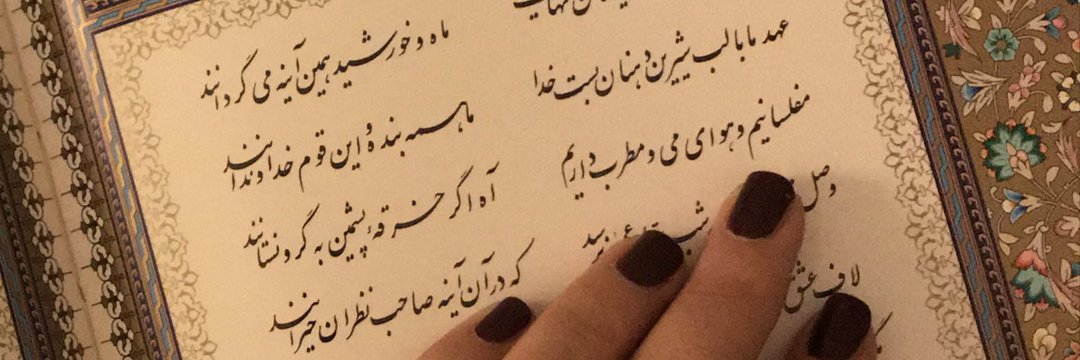 ماه و خورشید همین آینه می گردانند
عهد ما با لب شیرین دهنان بست خدا
ما همه بنده و این قوم خداوندانند
مفلسانیم و هوای می و مطرب داریم
آه اگر خرقهٔ پشمین به گرو نستانند
وصل شب نرسد
که در آن آینه صاحب نظران حیرانند
لاف عشق